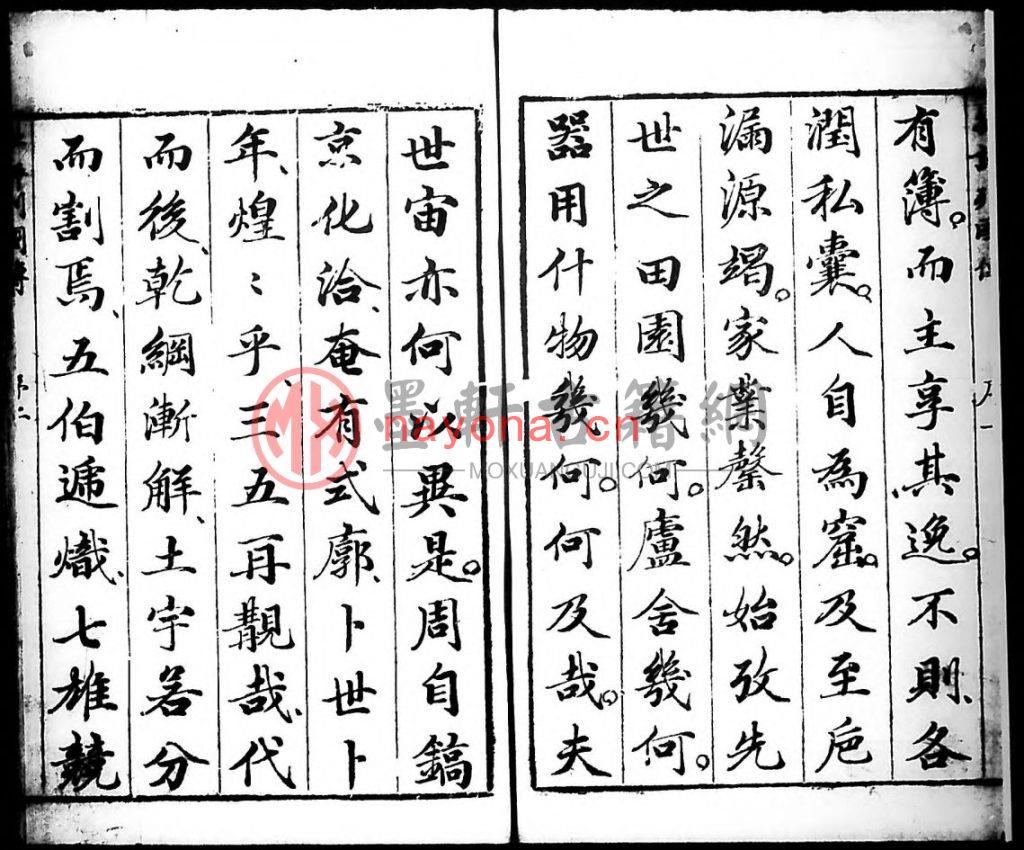 有簿。而主享其逸。不則、各
潤私囊。人自為窟。及至巵
漏源竭。家業罄然。始攷先
世之田園幾何。廬舍幾何。
器用什物幾何。何及哉。夫
世宙亦何以異是。周自鎬
京化洽、奄有式廓、卜世卜
年、煌〻乎、三五再覯哉、代
而後、乾綱漸解、土宇若分
而割焉、五伯遞熾、七雄競
墨軒古籍網
nayona.cn
MOXUANGUJI.COM